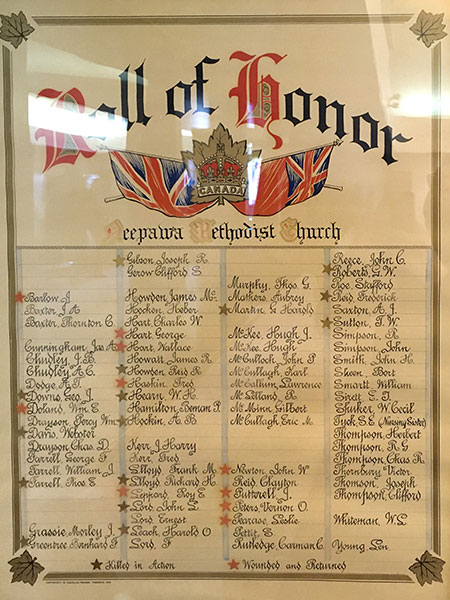 Roll of Honor
CANADA
Neepawa Methodist Church
Barlow J.
Baxter J. A.
Baxter Thornton C.
Cunningham Jas A.
Chudley J. B.
Chudley A. C.
Dodge A. T.
Downs Geo. J.
Doland Wm. E.
Drayson Percy Wm.
Davis Webster
Drayson Chas. D.
Farrell George F.
Farrell, William J.
Farrell, Thos E.
Grassie, Morley J.
Greentree Bernhard S.
Gibson Joseph R.
Gerow Clifford S
Howden James Mc.
Hocken, Heber
Hart Charles W
Hart George
Hart Wallace
Howatt James R.
Howden Reid R
Haskin Fred
Hearn W. H.
Hamilton, Beman P.
Hockin, A. B
Kerr J. Harry
Kerr Fred
Lloyd Frank M.
Lloyd Richard H.
Leppard Roy E
Lord John L.
Lord Ernest
Leach Harold O
Lord F
Murphy Thos G.
Mathers Aubrey
Martin G. Harold
McKee, Hugh J.
McKee, Hugh
McCulloch, John P
McCullagh, Karl
McCallum, Lawrence
McLelland R.
McMinn Gilbert
McCullagh Eric M.
Newton John W
Reid Clayton
Puttrell J.
Peters Vernon O.
Pearase, Leslie
Pettit S.
Rutledge, Carman C.
Reece, John C.
Roberts G. W.
Roe Stafford
Reid Frederick
Saxton A. J.
Sutton, F. W.
Simpson, R.
Simpson, John
Smith, John H.
Skeen Bert
Smartt William
Sirett E. J.
Shuker, W. Cecil
Tyck, S E (Nursing Sister)
Thompson Herbert
Thompson, R. G
Thompson Chas R.
Thornbury Victor
Thomson Joseph
Thompson, Clifford
Whiteman, W. L.
Young Len
Killed in Action
Wounded and Returned